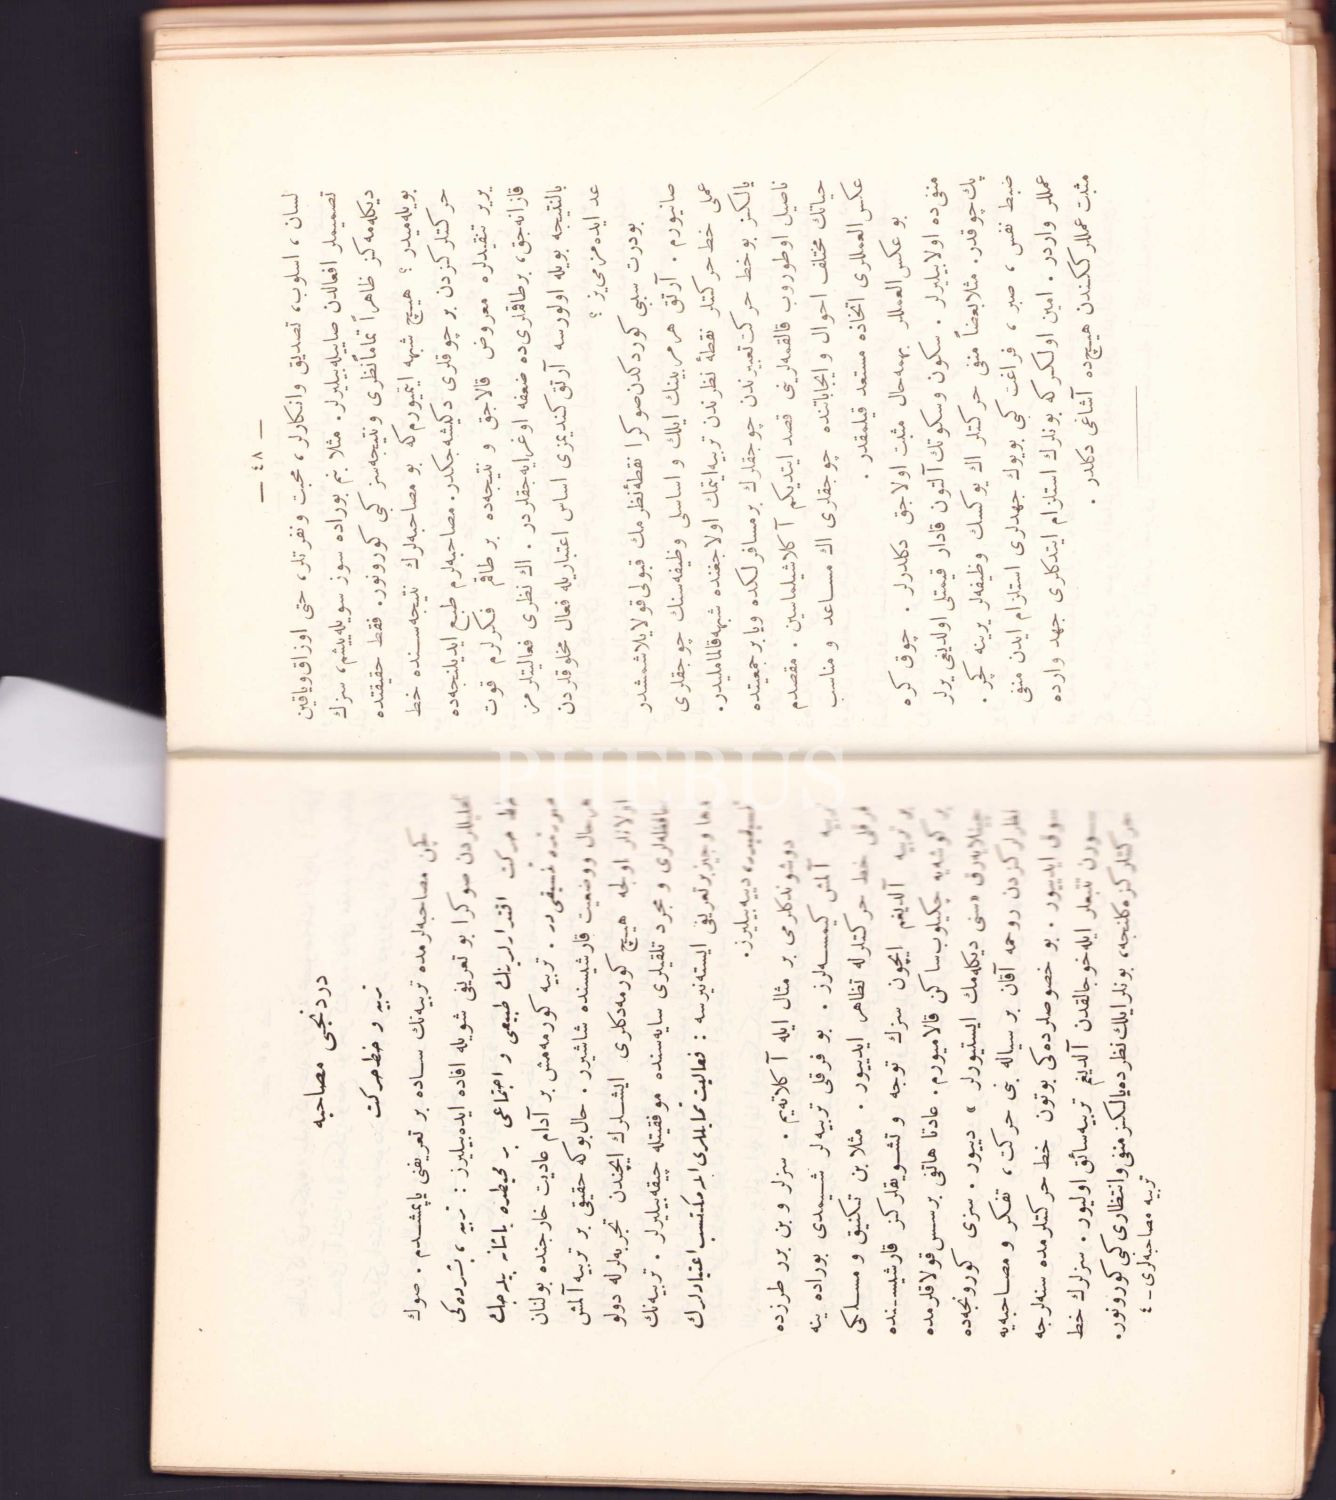 — ٤٨ —
لسان ، اسلوب، تصدیق وانکارلر ، محبت ونفرتلر، حتی اوزاق ویاقین
تصمیملر افعالدن صاییله بیلیرلر. مثلا بنم بوراده سوز سویله ییشم، سزك
دیکله مه کز ظاهراً تماماً نظری ونتیجه سز کبی کورونور. فقط حقیقتده
بویله میدر ؟ هیچ شبهه ایتمیورم که بو مصاحبه لرك نتیجه سنده خط
حرکتلرکزدن بر چوقلری دکیشه جکدر. مصاحبه لرم طبع ایدیلنجه ده
یریر تنقیدلره معروض قالاجق و نتیجه ده بر طاقم فکرلرم قوت
قازانه جق، برطاقملری ده ضعفه اوغرایه جقلردر . اك نظری فعالیتلرمز
بالنتیجه بویله اولورسه آرتق کندیمزی اساس اعتباریله فعال مخلوقلردن
عد ایده مزمی یز ؟
بودرت سببی کوردکدن صوکرا نقطهٔ نظرمك قبولی قولایلاشمشدر
صانیورم . آرتق هر مربینك ایلك و اساسلی وظیفه سنك چوجقلری
عملی خط حرکتلر نقطهٔ نظرندن تربیه ایتمك اولاجغنده شبهه قالماملیدر.
یالکز بوخط حرکت تعبیرندن چوجقلرك برمسافرلکده ویا برجمعیتده
ناصیل اوطوروب قالقمه لرینی قصد ایتدیکم آکلاشیلماسین . مقصدم
حیاتك مختلف احوال وایجاباتنده چوجقلری اك مساعد و مناسب
عکس العمللری اتخاذه مستعد قیلمقدر .
بو عکس العمللر بهمه حال مثبت اولاجق دکلدرلر . چوق کره
منفی ده اولابیلیرلر . سکون وسکوتك آلتون قادار قیمتلی اولدیغی یرلر
پك چوقدر. مثلا بعضاً منفی حرکتلر اك یوکسك وظیفه لر یرینه کچر.
ضبط نفس ، صبر ، فراغت کبی بویوك جهدلری استلزام ایدن منفی
عمللر واردر . امین اولکز که بونلرك استلزام ایتدکلری جهد وارده
مثبت عمللرککندن هیچ ده آشاغی دکلدر .
دردنجی مصاحبه
تربیه و خط حرکت
کچن مصاحبه لرمده تربیه نك ساده بر تعریفنی یاپمشدم . صوك
تحلیللردن صوکرا بو تعریفی شویله افاده ایده بیلیرز : تربیه ، بشرده کی
خط حرکت اقتدارلرینك طبیعی و اجتماعی بر محیطده یاشایه بیله جك
صورتده تنسیقی در . تربیه کورمه مش بر آدام عادیت خارجنده بولنان
هر حال ووضعیت قارشیسنده شاشیرر . حال بوکه حقیقی بر تربیه آلمش
اولانلر اولجه هیچ کورمه دکلری ایشلرك ایچندن تجربه لرله دولو
حافظه لری ومجرد تلقیلری سایه سنده موفقیتله چیقه بیلیرلر . تربیه نك
دها وجیز بر تعریفی ایسته نیرسه : فعالیت تمایللری ایله مکتسب اعتیادلرك
تنسیقیدر، دییه بیلیرز.
دوشوندکلرمی بر مثال ایله آکلاته یم . سزلر و بن برر طرزده
تربیه آلمش کیمسه لرز . بو فرقلی تربیه لر شیمدی بوراده ینه
فرقلی خط حرکتلرله تظاهر ایدییور . مثلا بن تکنیق و مسلکی
بر تربیه آلدیغم ایچون سزك توجه و تشویقلرکز قارشیسنده
بر کوشه یه چکیلوب ساکن قالامیورم. عادتا هاتفی برسس قولاقلرمده
چینلایه رق «سنی دیکله مك ایستیورلر » دییور . سزی کورونجه ده
نظرلرکزدن روحمه آقان بر سیاله بنی حرکت ، تفکر و مصاحبه یه
سوق ایدییور . بو خصوصلرده کی بوتون خط حرکتلرمده سنه لرجه
سورن تتبعلر ایله خوجالقدن آلدیغم تربیه سائق اولیور . سزلرك خط
حرکتلرکزه کلنجه ، بونلر ایلك نظرده یالکز منفی وانتظاری کبی کورونور.
تربیه مصاحبه لری - ٤
PHEBUS